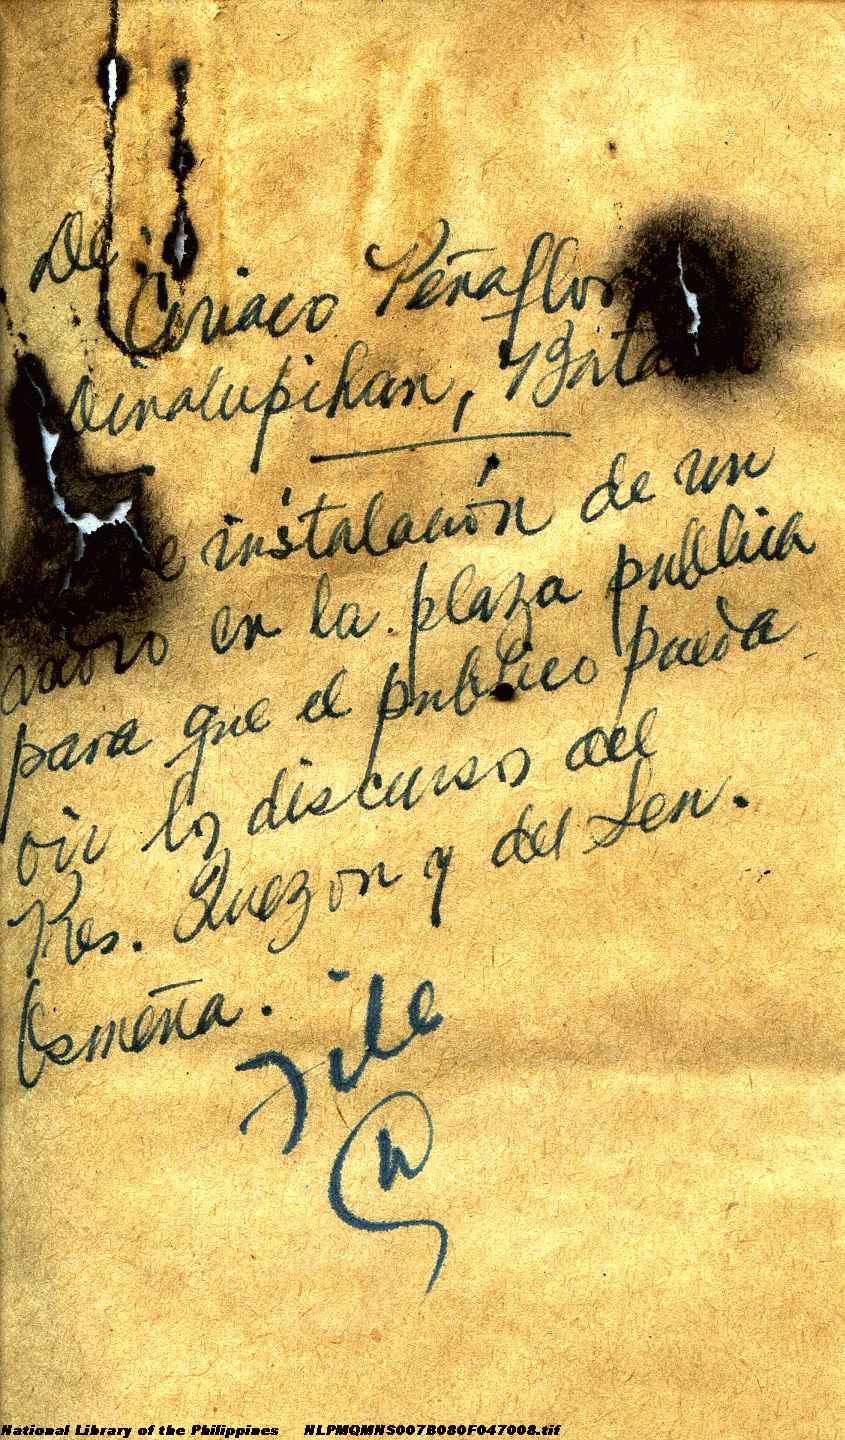 De
Ciriaco Peñaflor
Dinalupihan, Bataan
instalación de un
radio en la plaza publica
para que el publico pueda
oir los discursos del
Pres. Quezon y del Sen.
Osmeña.
File
National Library of the Philippines NLPMQMNS007B080F047008.tif